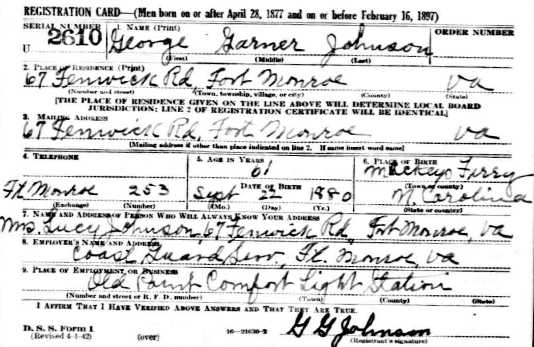 REGISTRATION CARD—(Men born on or after April 28, 1877 and on or before February 16, 1897)
SERIAL NUMBER 1. NAME (Print) ORDER NUMBER
U 2610 George Garner Johnson
(First) (Middle) (Last)
2. PLACE OF RESIDENCE (Print)
67 Fenwick Rd, Fort Monroe Va
(Number and street) (Town, township, village, or city) (County) (State)
[THE PLACE OF RESIDENCE GIVEN ON THE LINE ABOVE WILL DETERMINE LOCAL BOARD
JURISDICTION; LINE 2 OF REGISTRATION CERTIFICATE WILL BE IDENTICAL]
3. MAILING ADDRESS
67 Fenwick Rd, Fort Monroe Va
[Mailing address if other than place indicated on line 2. If same insert word same]
4. TELEPHONE 5. AGE IN YEARS 6. PLACE OF BIRTH
61 Ferry
DATE OF BIRTH (Town or county)
Ft. Monroe 253 Sept 22 1880 N. Carolina
(Exchange) (Number) (Mo.) (Day) (Yr.) (State or country)
7. NAME AND ADDRESS OF PERSON WHO WILL ALWAYS KNOW YOUR ADDRESS
Mrs. Lucy Johnson, 67 Fenwick Rd, Fort Monroe, Va
8. EMPLOYER'S NAME AND ADDRESS
Coast Guard Serv, Ft. Monroe Va
9. PLACE OF EMPLOYMENT OR BUSINESS
Old Point Comfort Light Station
(Number and street or R. F. D. number) (Town) (County) (State)
I AFFIRM THAT I HAVE VERIFIED ABOVE ANSWERS AND THAT THEY ARE TRUE.
D. S. S. Form 1
(Revised 4-1-42) (over) 16—21630-2 G G Johnson
(Registrant's signature)